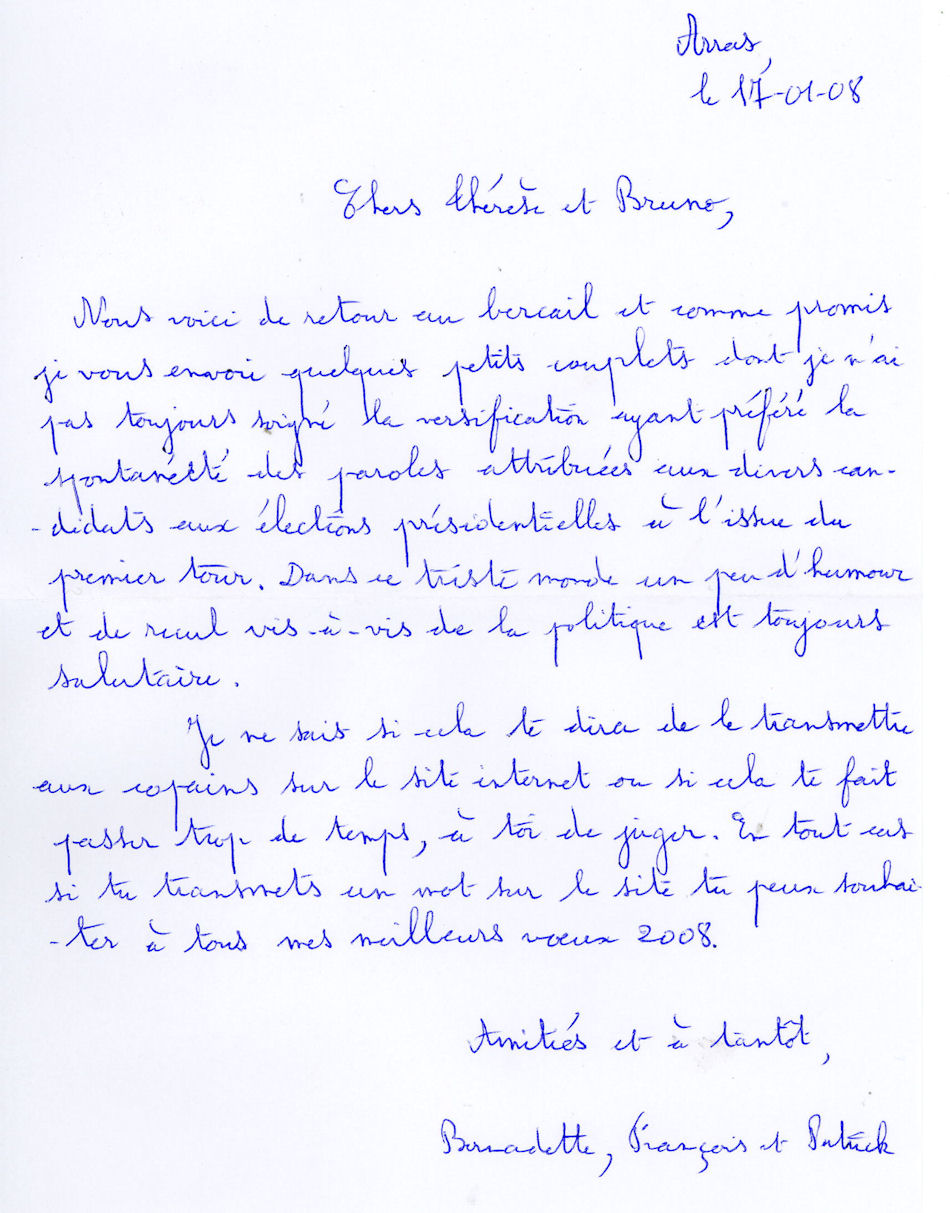 Arras,
le 17-01-08
Chers Thérèse et Bruno,
Nous voici de retour au bercail et comme promis
je vous envoie quelques petits couplets dont je n'ai
pas toujours soigné la versification ayant préféré la
spontanéité des paroles attribuées aux divers can-
-didats aux élections présidentielles à l'issue du
premier tour. Dans ce triste monde un peu d'humour
et de recul vis-à-vis de la politique est toujours
salutaire.
Je ne sais si cela te dira de le transmettre
aux copains sur le site internet ou si cela te fait
passer trop de temps, à toi de juger. En tout cas
si tu transmets un mot sur le site tu peux souhai-
-ter à tous mes meilleurs voeux 2008.
Amitiés et à tantôt,
Bernadette, François et Patrick